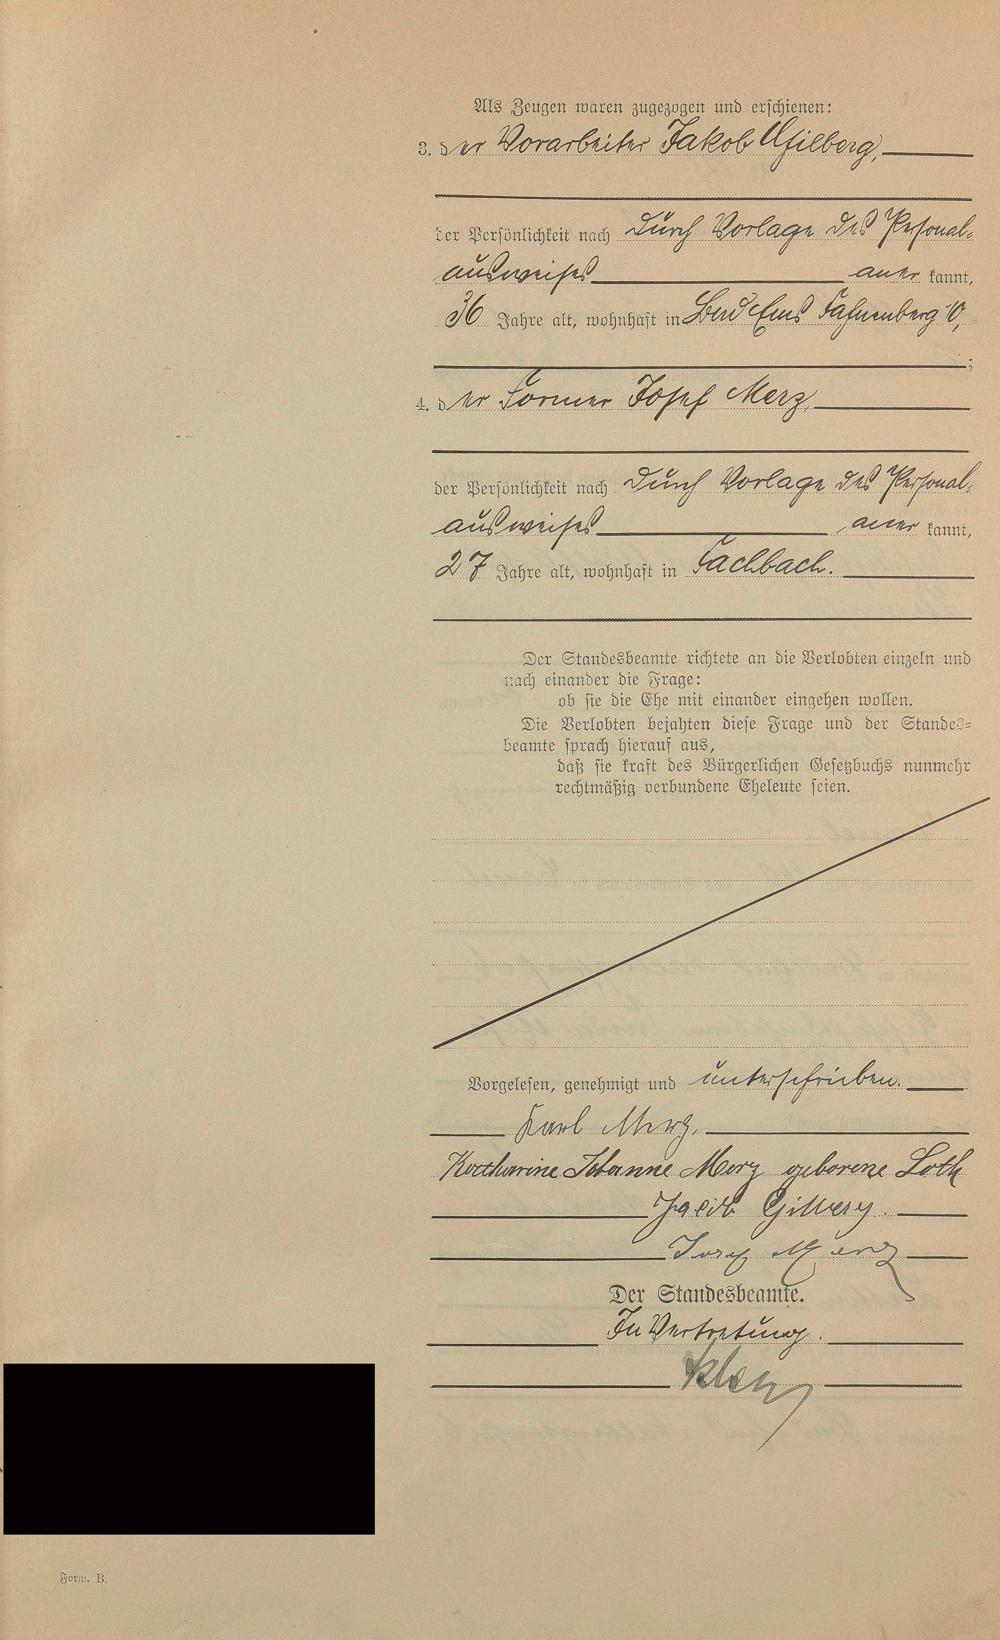 Als Zeugen waren zugezogen und erschienen:
3. der Vorarbeiter Jakob
der Persönlichkeit nach durch Vorlage des Personal-
ausweises anerkannt,
36 Jahre alt, wohnhaft in Bad Ems Fahnenberg 10,
;
4. der Former Josef Merz,
der Persönlichkeit nach durch Vorlage des Personal-
ausweises anerkannt,
27 Jahre alt, wohnhaft in Fachbach.
Der Standesbeamte richtete an die Verlobten einzeln und
nach einander die Frage:
ob sie die Ehe mit einander eingehen wollen.
Die Verlobten bejahten diese Frage und der Standes-
beamte sprach hierauf aus,
daß sie kraft des Bürgerlichen Gesetzbuchs nunmehr
rechtmäßig verbundene Eheleute seien.
Vorgelesen, genehmigt und unterschrieben.
Karl Merz.
Katharine Johanne Merz geborene Loth
Jacob
Josef Merz
Der Standesbeamte.
In Vertretung.
Form. B.